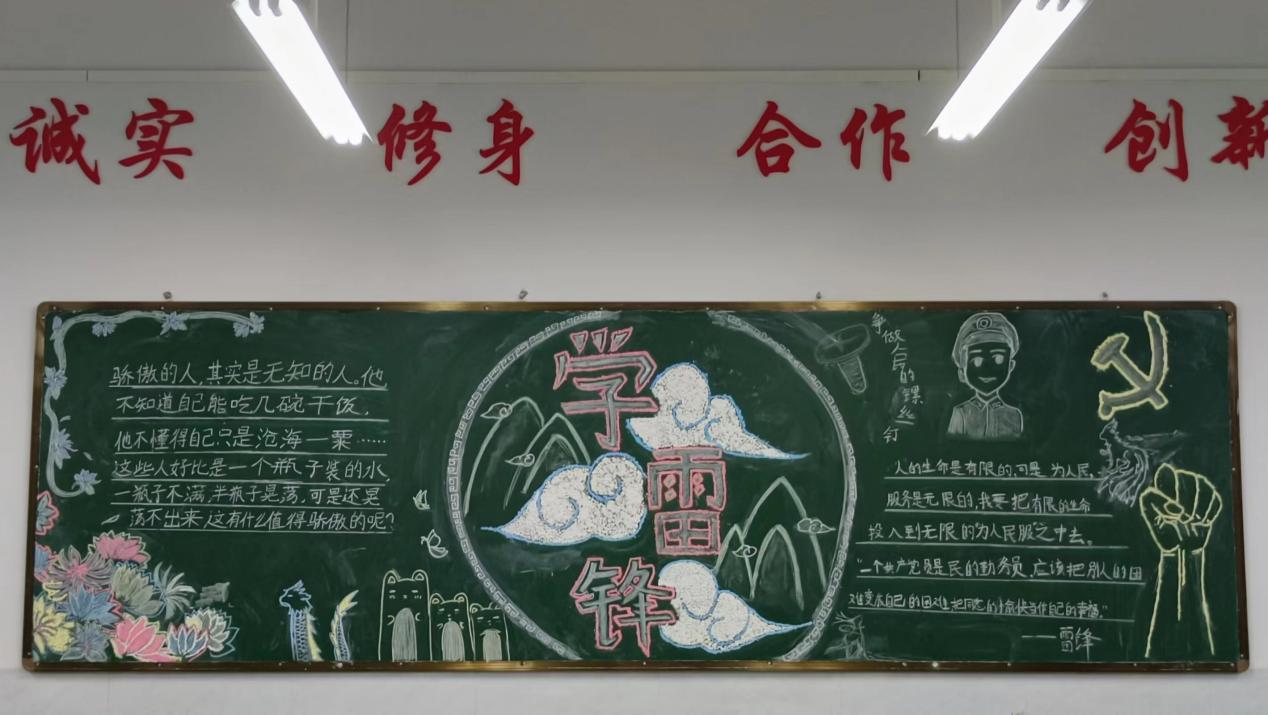 诚实 修身 合作 创新
骄傲的人,其实是无知的人。他
不知道自己能吃几碗干饭,
他不懂得自己只是沧海一粟……
这些人好比是一个瓶子装的水,
一瓶子不满,半瓶子晃荡,可是还晃
荡不出来,这有什么值得骄傲的呢?
学雷锋
争做人民的螺丝钉
"人的生命是有限的,可是,为人民
服务是无限的,我要把有限的生命
投入到无限的"为人民服之中去。
"一个共产党员是民的勤务员,应该把别人的困
难当成自己的困难,把同志的愉快当作自己的幸福"
——雷锋